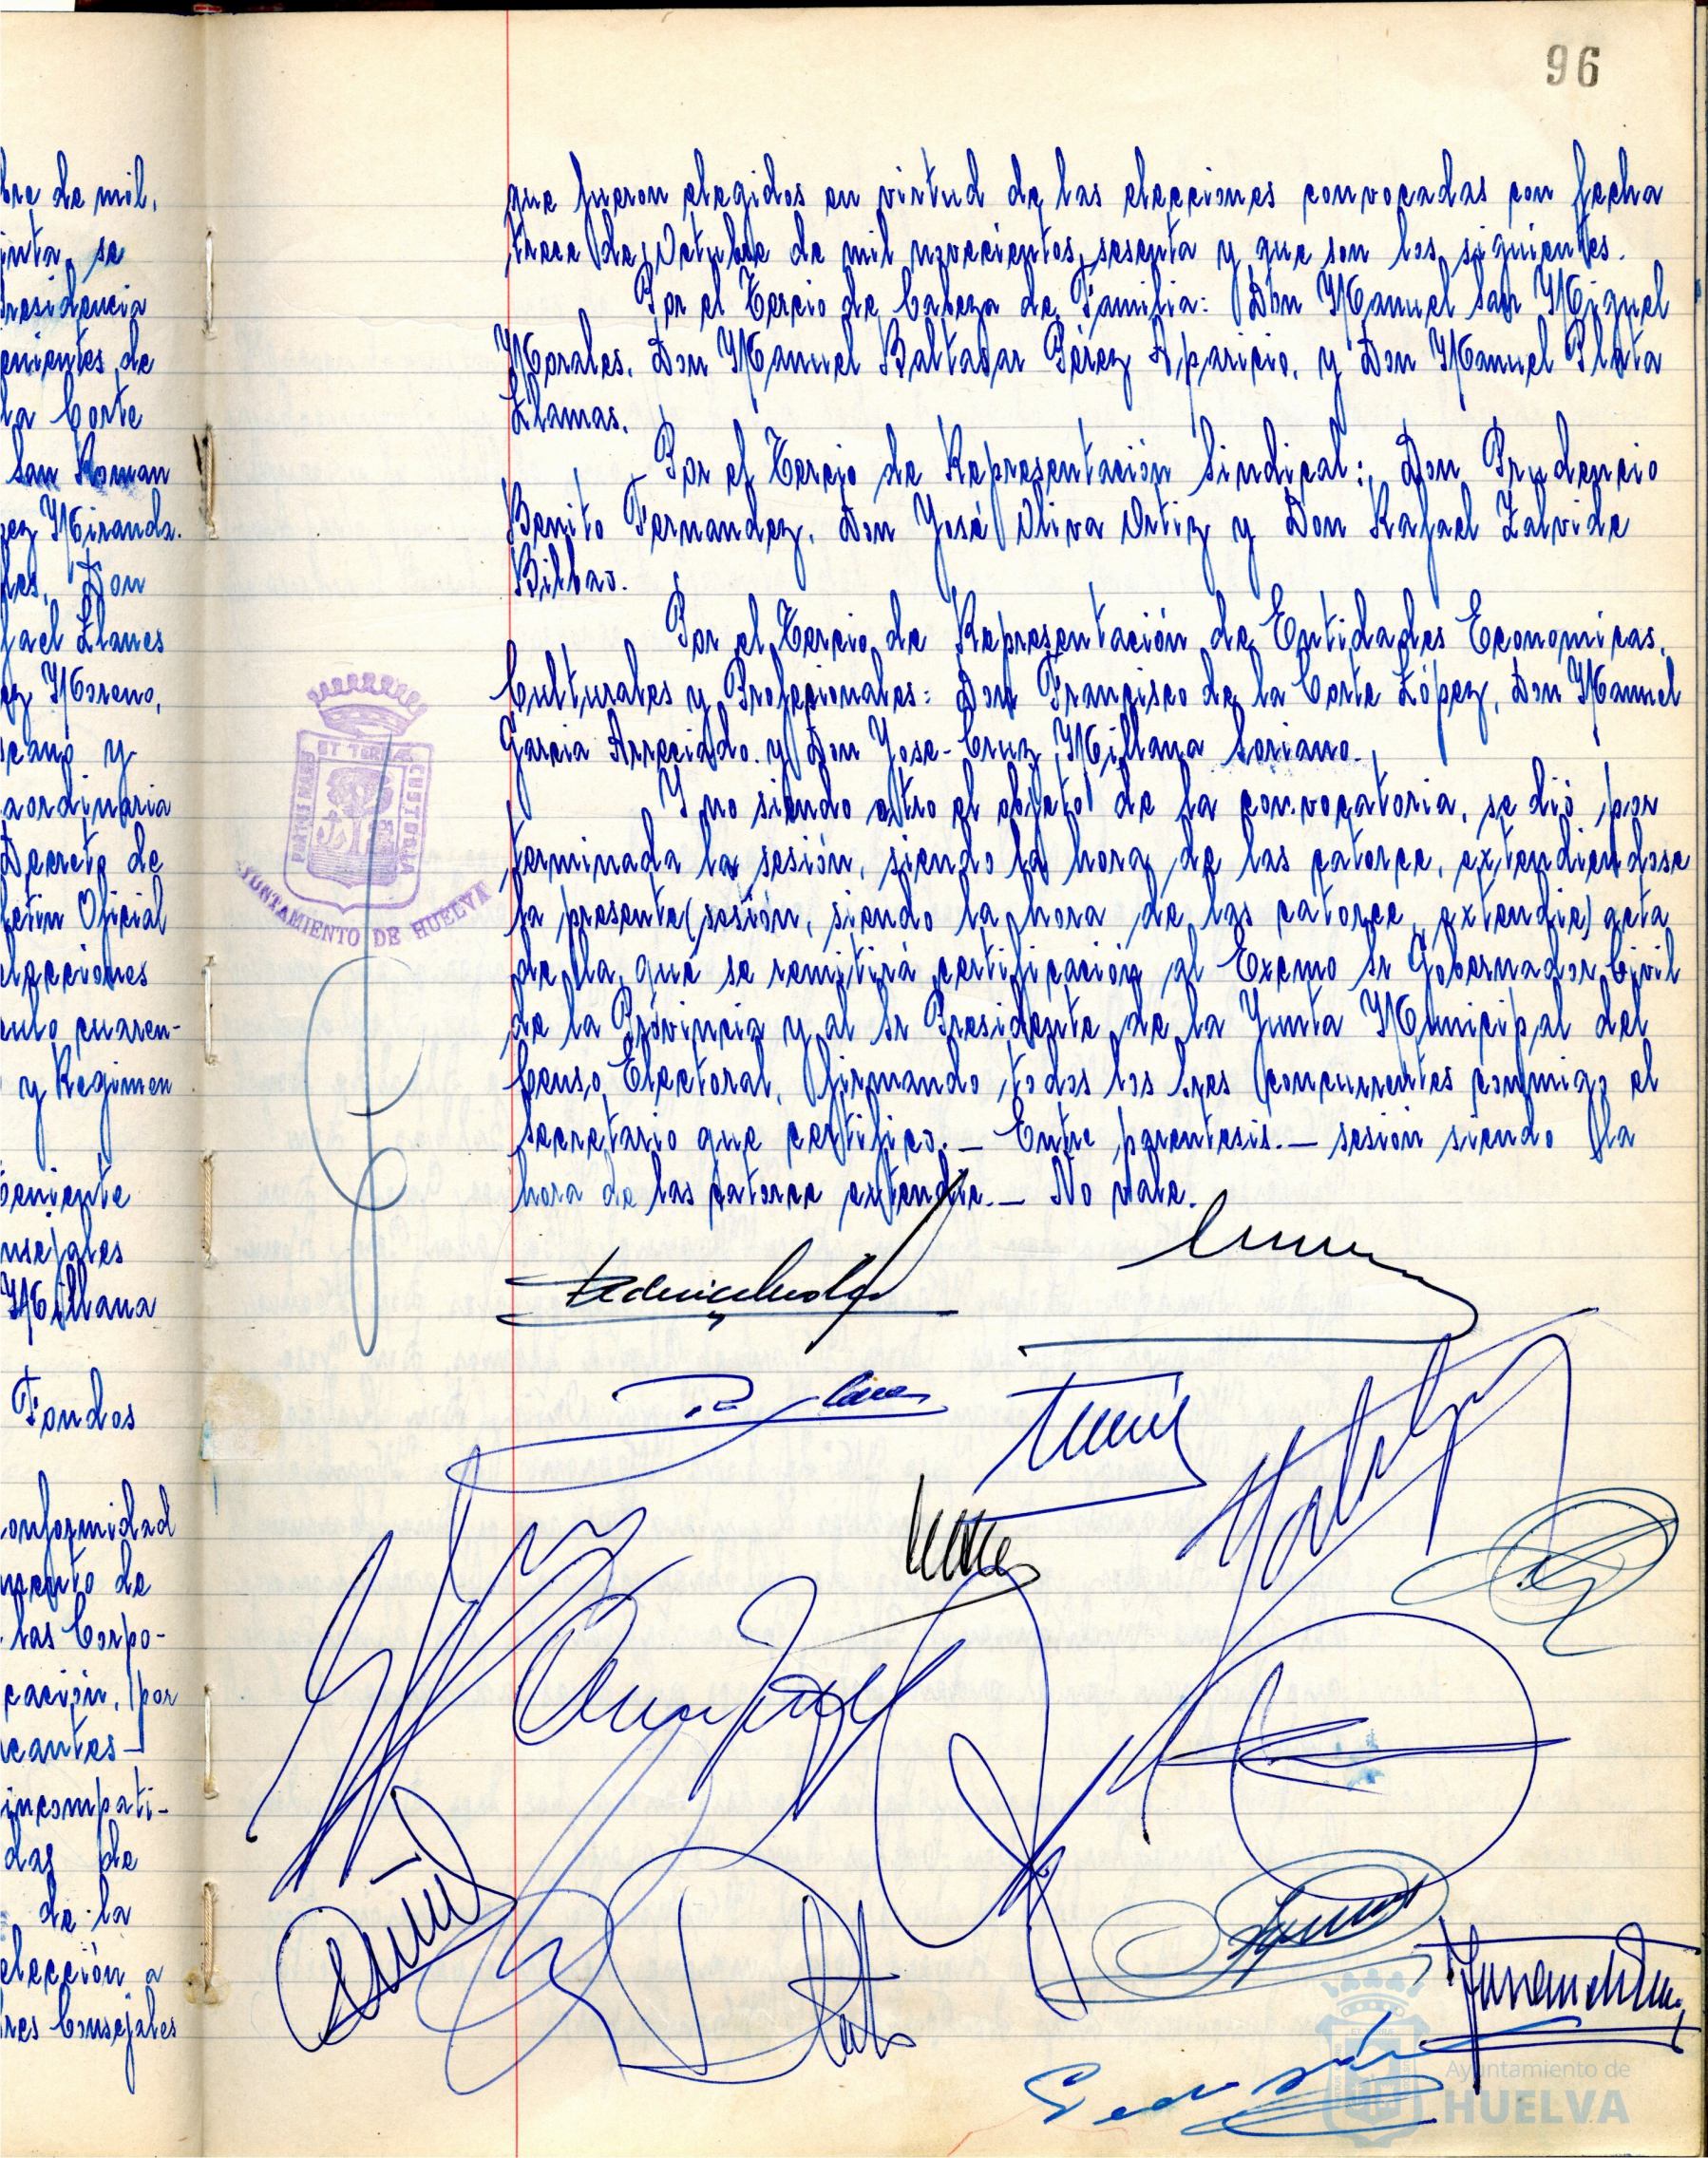 96
bre de mil,
inta, se
Presidencia
enientes de
la Corte
San Roman
ez Miranda.
les, Don
fael Llanes
ez Moreno,
cano y
aordinaria
Decreto de
letin Oficial
elecciones
culo cuaren-
y Regimen
eniente
nsejales
Millana
Fondos
conformidad
mento de
las Corpo-
cación, por
cantes-
incompati-
das de
de la
elección a
res Consejales
que fueron elegidos en virtud de las elecciones convocadas con fecha
trece de Octubre de mil novecientos sesenta y que son los siguientes.
Por el Tercio de Cabeza de Familia: Don Manuel San Miguel
Morales, Don Manuel Baltasar Pérez Aparicio, y Don Manuel Plata
Llamas.
Por el Tercio de Representación Sindical: Don Prudencio
Benito Fernandez, Don José Oliva Ortiz y Don Rafael Zalvide
Bilbao.
Por el Tercio de Representación de Entidades Economicas,
Culturales y Profesionales: Don Francisco de la Corte López, Don Manuel
Garcia Arreciado y Don Jose-Cruz Millana Soriano.
Y no siendo otro el objeto de la convocatoria, se dió por
terminada la sesión, siendo la hora de las catorce, extendiendose
la presente (sesión, siendo la hora de las catorce, extendie) acta
de la que se remitirá certificación al Excmo Sr Gobernador Civil
de la Provincia y al Sr Presidente de la Junta Municipal del
Censo Electoral, firmando todos los Sres concurrentes conmigo el
secretario que certifico.- Entre parentesis.- sesion siendo la
hora de las catorce extendie.- No vale.
PORTUS MARIS ET TERRAE CUSTODIA
AYUNTAMIENTO DE HUELVA
Plata
Ayuntamiento de
HUELVA